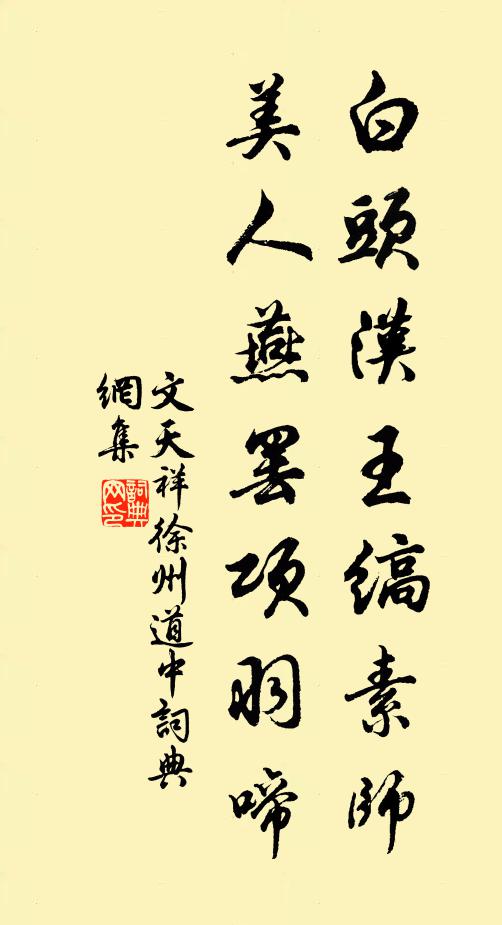 白頭漢王縞素師
美人燕罷項羽啼
文天祥徐州道中詞典
網集
詞典
网印